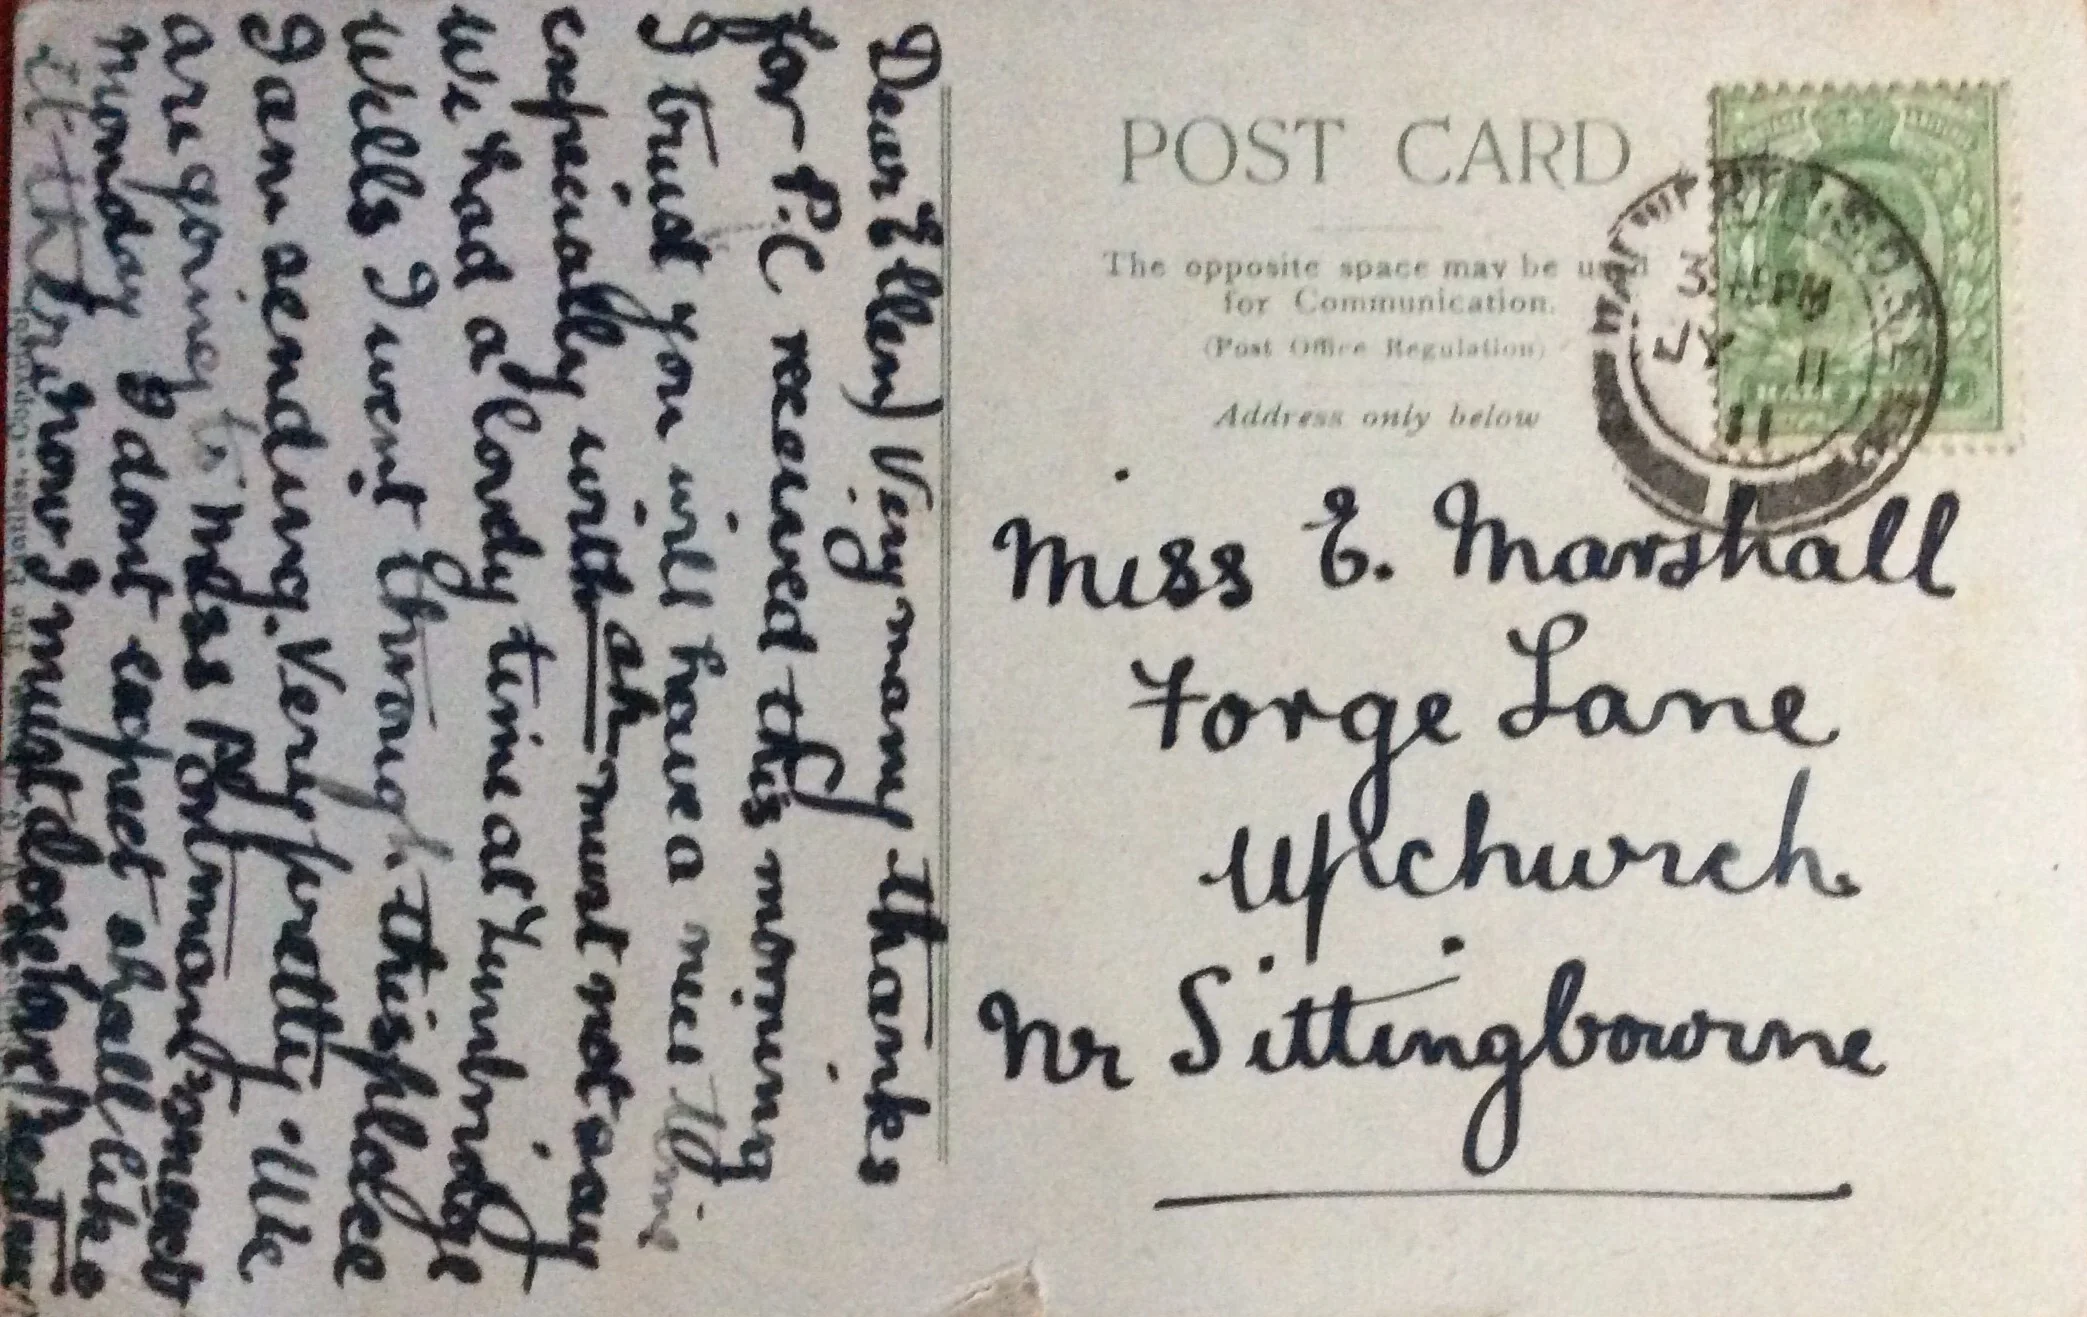 POST CARD
The opposite space may be used
for Communication.
(Post Office Regulation)
Address only below
3 45 PM
11
11
Miss E. Marshall
Forge Lane
Upchurch
Nr Sittingbourne
Dear Ellen) Very many thanks
for P.C received this morning
I trust you will have a nice time
especially with ah must not say
We had a lovely time at Tunbridge
Wells I went through this place
I am sending. Very pretty. We
are going to Mrs Portman's next
monday I dont expect shall like
it there now I must close